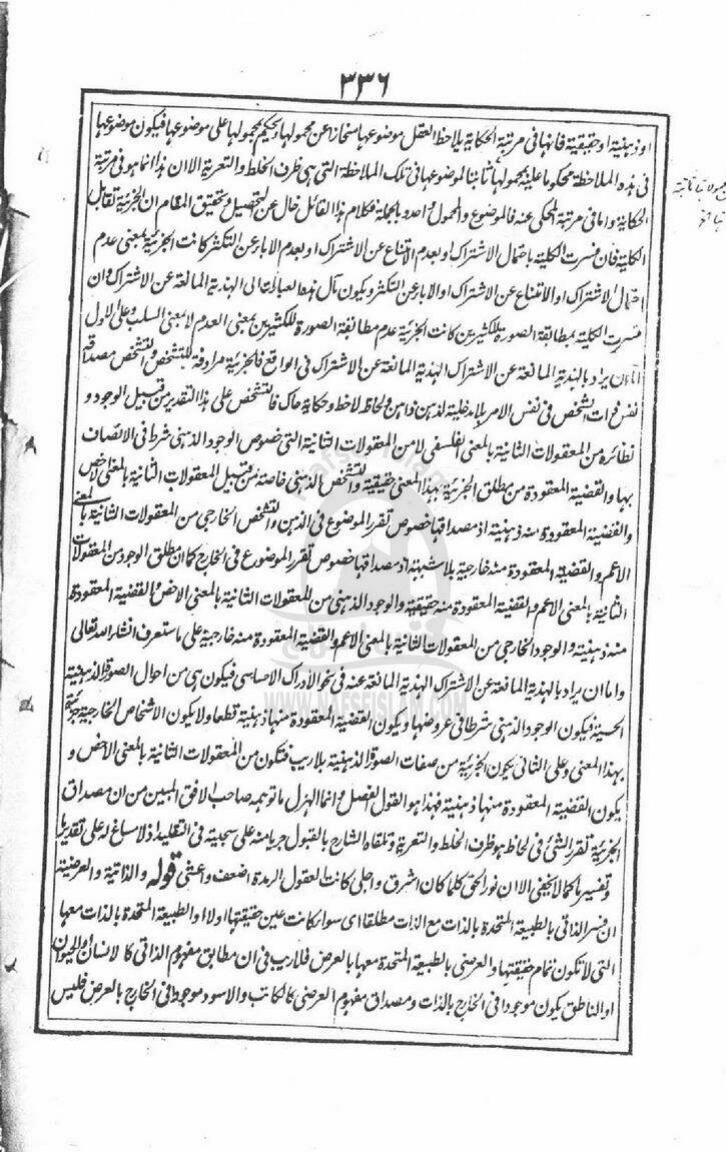 ٣٣٦
او ذهنية او حقيقية فانها فى مرتبة الحكاية يلاحظ العقل موضوعها منحازا عن محمولها ويحكم بمحمولها على موضوعها فيكون موضوعها
فى هذه الملاحظة محكوما عليه بمحمولها ثابتا لموضوعها فى تلك الملاحظة التى هى ظرف الخلط والتعرية الا ان هذا انما هو فى مرتبة
الحكاية واما فى مرتبة المحكى عنه فالموضوع والمحمول واحد وبالجملة فكلام هذا القائل خال عن التحصيل وتحقيق المقام ان الجزئية تقابل
الكلية فان فسرت الكلية باحتمال الاشتراك او بعدم الامتناع عن الاشتراك او بعدم الاباء عن التكثر كانت الجزئية بمعنى عدم
احتمال الاشتراك او الامتناع عن الاشتراك او الاباء عن التكثر ويكون مآل هذه العبارات الى الهذية المانعة عن الاشتراك وان
فسرت الكلية بمطابقة الصورة للكثيرين كانت الجزئية عدم مطابقة الصورة للكثيرين بمعنى العدم لا بمعنى السلب وعلى الاول
اما ان يراد بالهذية المانعة عن الاشتراك الهذية المانعة عن الاشتراك فى الواقع فالجزئية مرادفة للتشخص والتشخص مصداقه
نفس ذات الشخص فى نفس الامر بلا مدخلية لذهن ذاهن ولحاظ لاحظ وحكاية حاك فالتشخص على هذا التقدير من قبيل الوجود و
نظائره من المعقولات الثانية بالمعنى الفلسفى لا من المعقولات الثانية التى خصوص الوجود الذهنى شرط فى الاتصاف
بها والقضية المعقودة من مطلق الجزئية بهذا المعنى حقيقية والتشخص الذهنى خاصة من قبيل المعقولات الثانية بالمعنى الاخص
والقضية المعقودة منه ذهنية اذ مصداقها خصوص تقرر الموضوع فى الذهن والتشخص الخارجى من المعقولات الثانية بالمعنى
الاعم والقضية المعقودة منه خارجية بلا شبهة اذ مصداقها خصوص تقرر الموضوع فى الخارج كما ان مطلق الوجود من المعقولات
الثانية بالمعنى الاعم والقضية المعقودة منه حقيقية والوجود الذهنى من المعقولات الثانية بالمعنى الاخص والقضية المعقودة
منه ذهنية والوجود الخارجى من المعقولات الثانية بالمعنى الاعم والقضية المعقودة منه خارجية على ما ستعرف انشاء الله تعالى
واما ان يراد بالهذية المانعة عن الاشتراك الهذية المانعة عنه فى نحو الادراك الاحساسى فيكون هى من احوال الصورة الذهنية
الحسية فيكون الوجود الذهنى شرطا فى عروضها ويكون القضية المعقودة منها ذهنية قطعا ولا يكون الاشخاص الخارجية جزئية
بهذا المعنى وعلى الثانى يكون الجزئية من صفات الصورة الذهنية بلا ريب فتكون من المعقولات الثانية بالمعنى الاخص و
يكون القضية المعقودة منها ذهنية فهذا هو القول الفصل وانما الهزل ما توهمه صاحب الافق المبين من ان مصداق
الجزئية تقرر الشئ فى لحاظ هو ظرف الخلط والتعرية وتلقاه الشارح بالقبول جريا منه على سجيته فى التقليد اذ لا مساغ له على تقدير ما
وتفسير ما كما لا يخفى الا ان نور الحق كلما كان اشرق واجلى كانت العقول الرمدة اضعف واعشى قوله والذاتية والعرضية
ان فسر الذاتى بالطبيعة المتحدة بالذات مع الذات مطلقا اى سواء كانت عين حقيقتها اولا او الطبيعة المتحدة بالذات معها
التى لا تكون تمام حقيقتها والعرضى بالطبيعة المتحدة معها بالعرض فلا ريب فى ان مطابق مفهوم الذاتى كالانسان والحيوان
او الناطق يكون موجودا فى الخارج بالذات ومصداق مفهوم العرضى كالكاتب والاسود موجود فى الخارج بالعرض فليس
WWW.NAFSEISLAM.COM